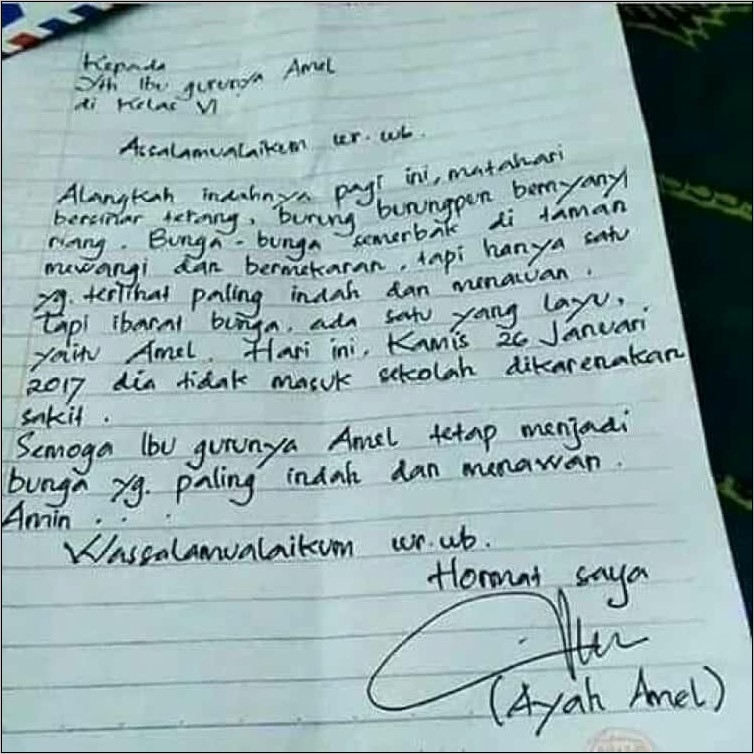 Kepada
Yth Ibu gurunya Amel
di Kelas VI
Assalamualaikum wr. wb.
Alangkah indahnya pagi ini, matahari
bersinar terang, burung burungpun bernyanyi
riang. Bunga-bunga semerbak di taman
mewangi dan bermekaran, tapi hanya satu
yg. terlihat paling indah dan menawan.
Tapi ibarat bunga, ada satu yang layu,
yaitu Amel. Hari ini, Kamis 26 Januari
2017 dia tidak masuk sekolah dikarenakan
sakit.
Semoga Ibu gurunya Amel tetap menjadi
bunga yg. paling indah dan menawan.
Amin . . .
Wassalamualaikum wr.wb.
Hormat saya
(Ayah Amel)